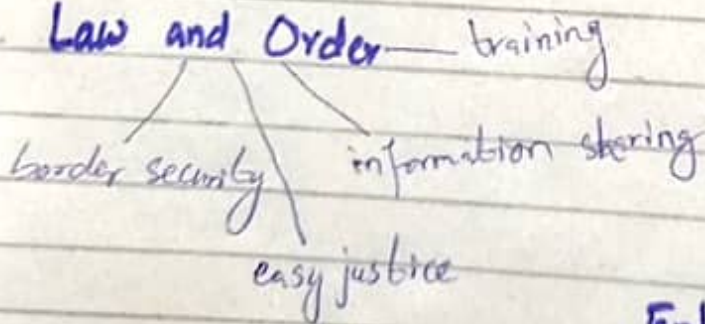 Law and Order — training
border security
information sharing
easy justice